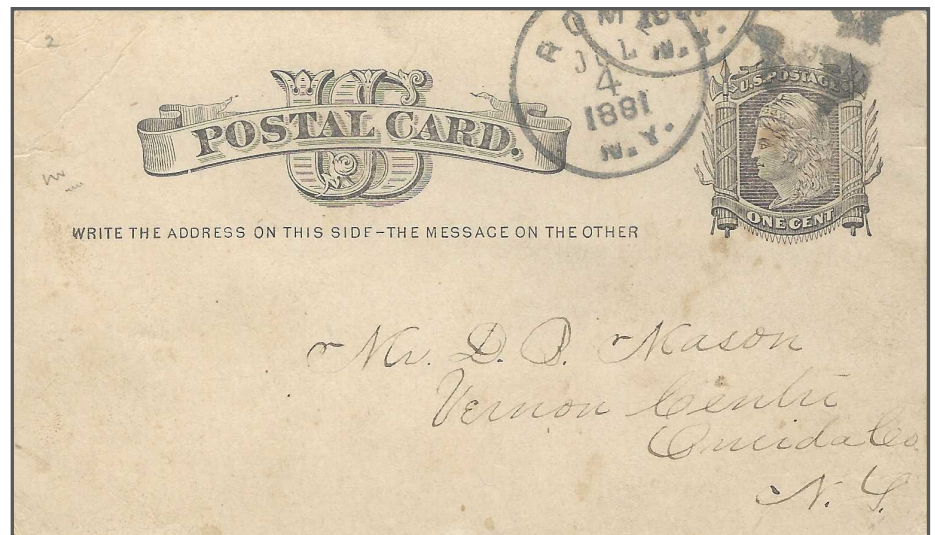 2
U.S. POSTAGE
ROME
JUL
4
1881
N.Y.
188
N.Y.
US
POSTAL CARD.
ONE CENT
WRITE THE ADDRESS ON THIS SIDE-THE MESSAGE ON THE OTHER
Mr. D. B. Mason
Vernon Centre
Oneida Co
N. Y.